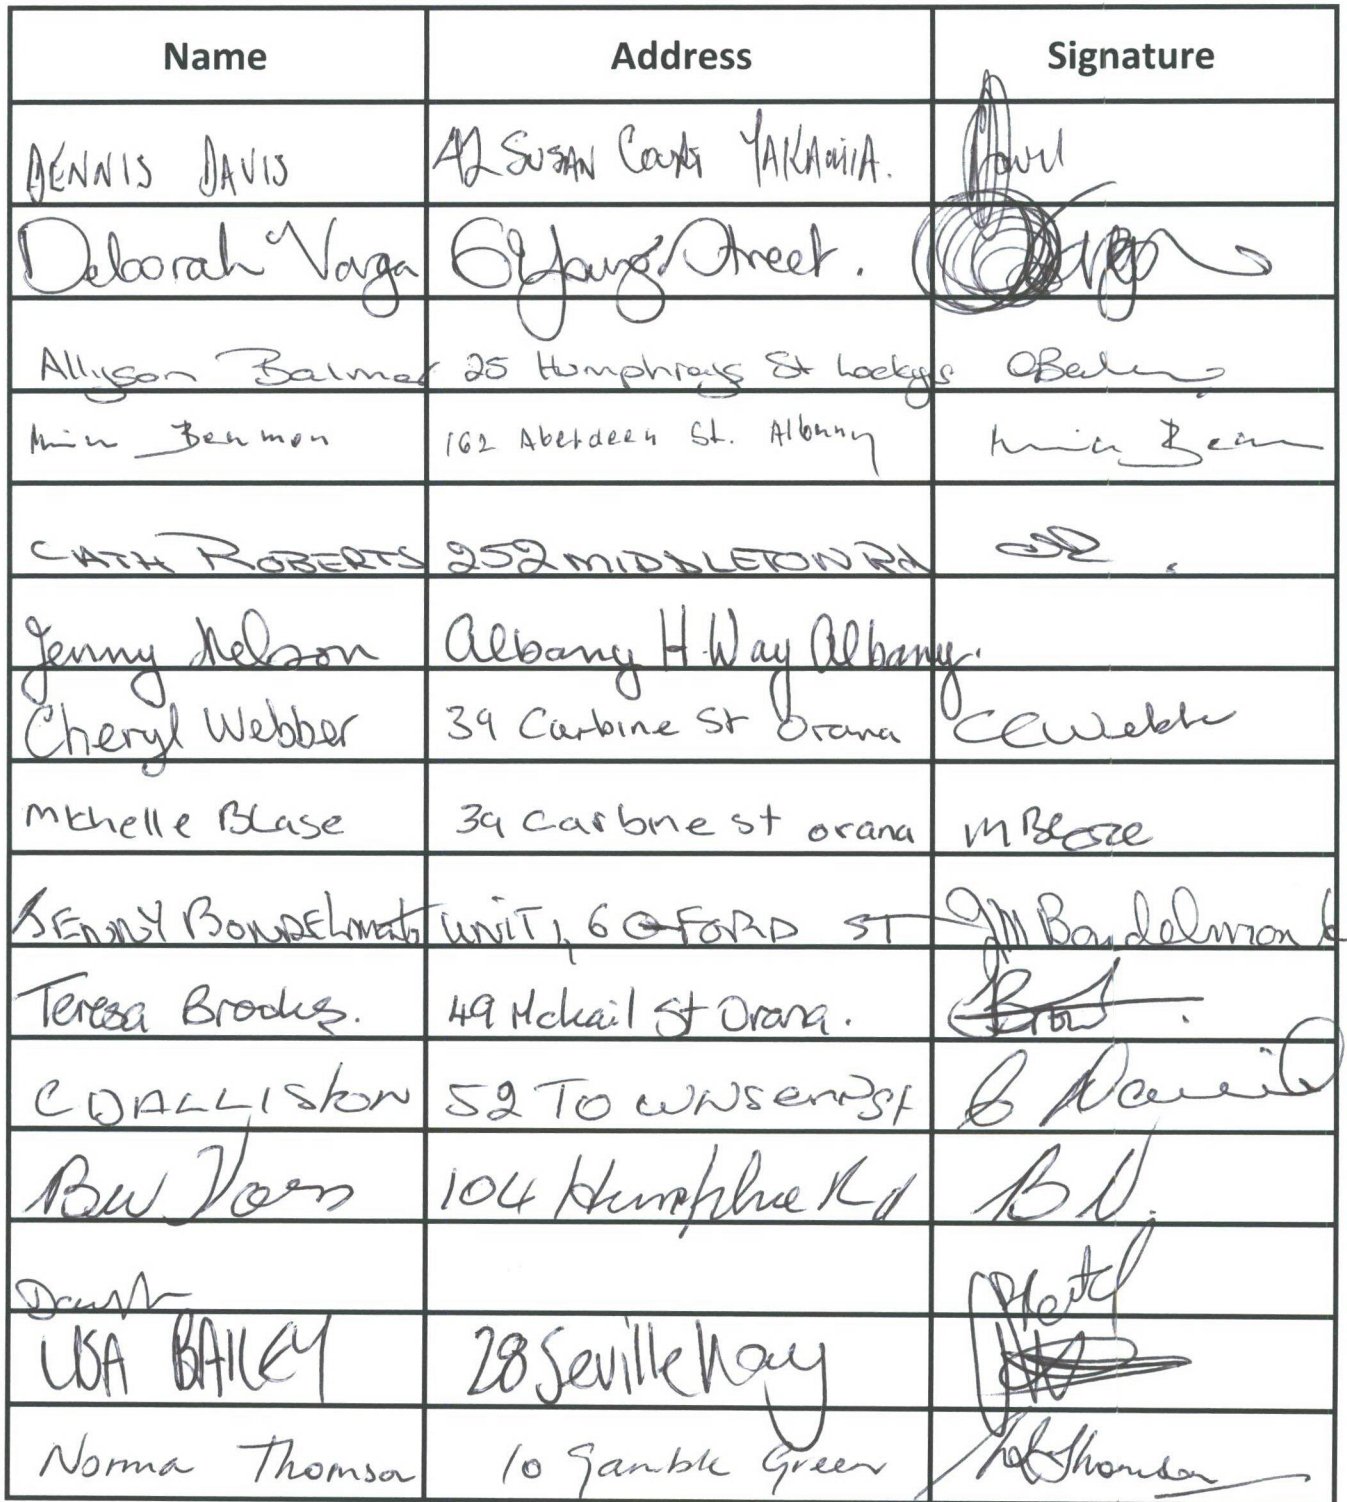 Name Address Signature
DENNIS DAVIS 42 SUSAN Court YAKAMIA.
Deborah Varga 69 Young Street.
Allyson Balmer 25 Humphreys St Lockys
Beamon 162 Aberdeen St. Albany
CATH ROBERTS 252 MIDDLETON Rd
Jenny Nelson Albany H.Way Albany.
Cheryl Webber 39 Carbine St Orana CCWebb
Michelle Blase 39 carbine st orana M Blase
JENNY BONDELMONTE UNIT 1, 6 FORD ST JM Bondelmonte
Teresa Brooks. 49 Mckail St Orana.
C DALLISTON 52 TOWNSEND St
104 Humphre Rd BV.
LISA BAILEY 28 Seville Way
Norma Thomson 10 Gamble Green Thomson